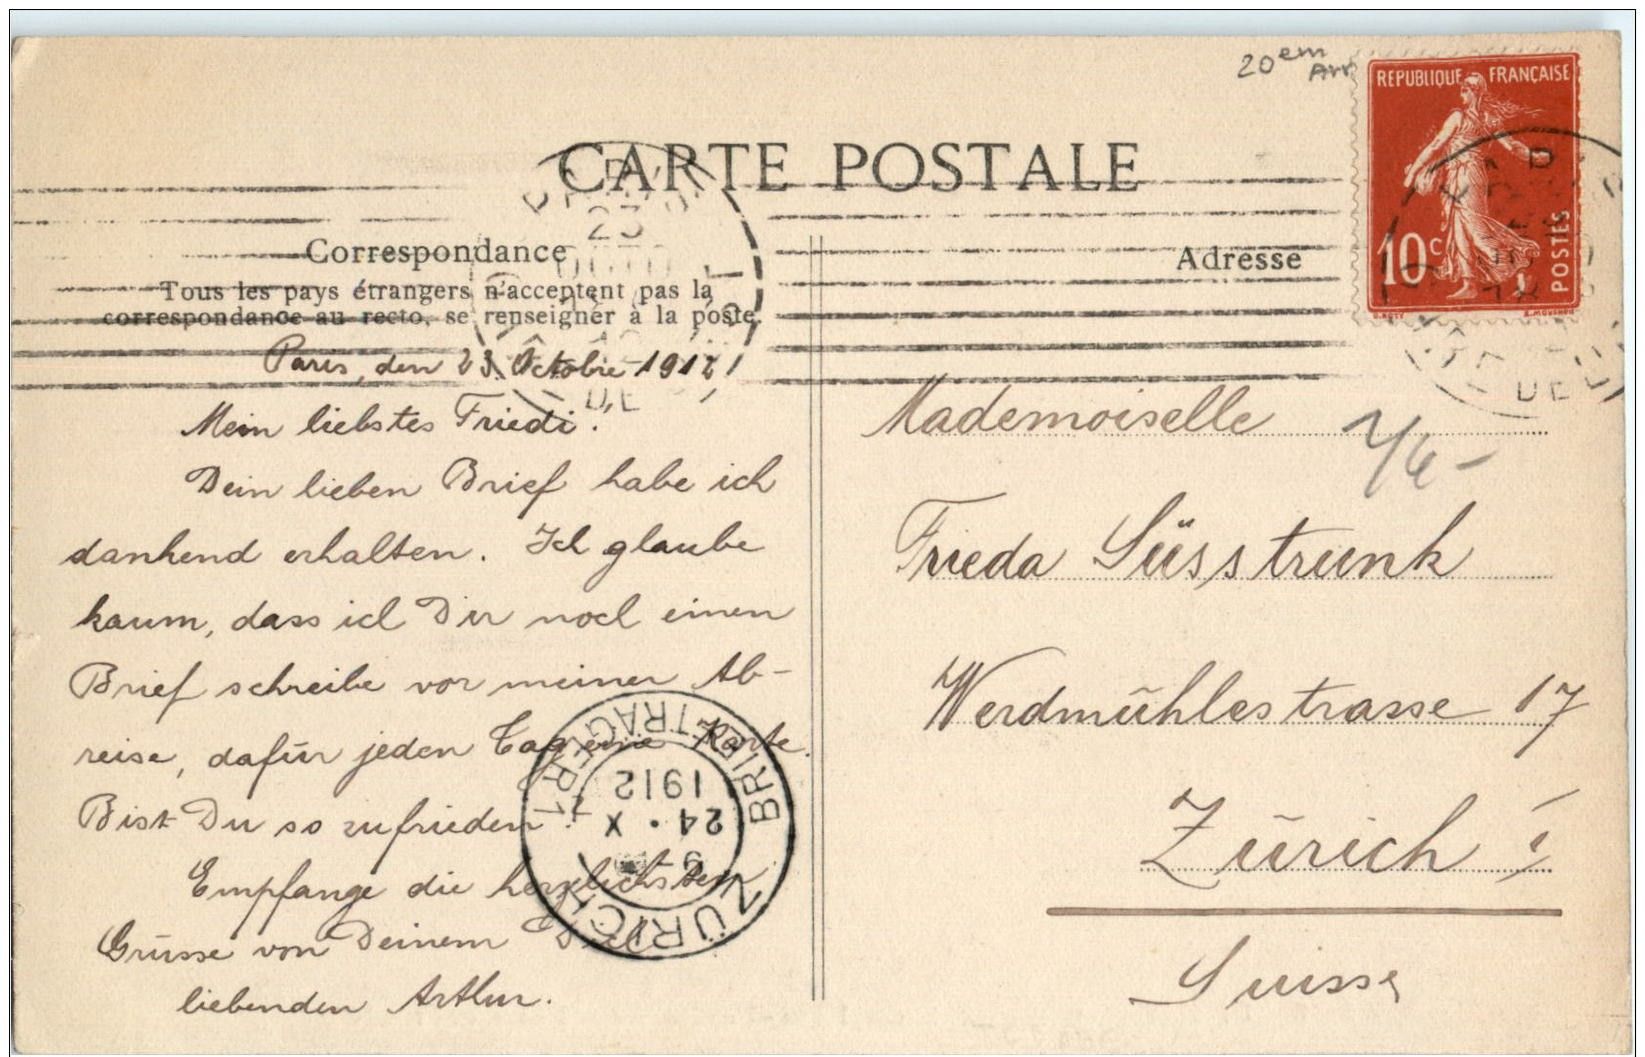 20em
Arr
REPUBLIQUE FRANÇAISE
10c
POSTES
CARTE POSTALE
Correspondance
Tous les pays étrangers n'acceptent pas la
correspondance au recto, se renseigner à la poste.
Paris, den 23. Octobre 1912
Mein liebstes Friedi!
Dein lieben Brief habe ich
dankend erhalten. Ich glaube
kaum, dass ich Dir noch einen
Brief schreibe vor meiner Ab-
reise, dafür jeden Tag eine Karte.
Bist Du so zufrieden?
Empfange die herzlichsten
Grüsse von Deinem Dich
liebenden Arthur.
Adresse
Mademoiselle
Frieda Süsstrunk
Werdmühlestrasse 17
Zürich I
Suisse
ZÜRICH 1
BRIEFTRÄGER
24. X
1912
PARIS
23